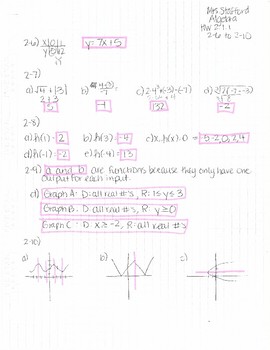 Mrs. Stafford
Algebra
HW 2.1.1
2-6 to 2-10
2-6) x|0|1 y = 7x + 5
2-7)
a) b) c) d)
5 -1 132 -2
2-8)
a) h(1) = 2 b) h(3) = -4 c) x, h(x) = 0 → -5, -2, 0, 2, 4
d) h(-1) = -2 e) h(-4) = 13
2-9) a and b are functions because they only have one
output for each input.
d) Graph A: D: all real #'s, R: 1 ≤ y ≤ 3
Graph B: D: all real #'s, R: y ≥ 0
Graph C: D: x ≥ -2, R: all real #'s
2-10)
a) b) c)